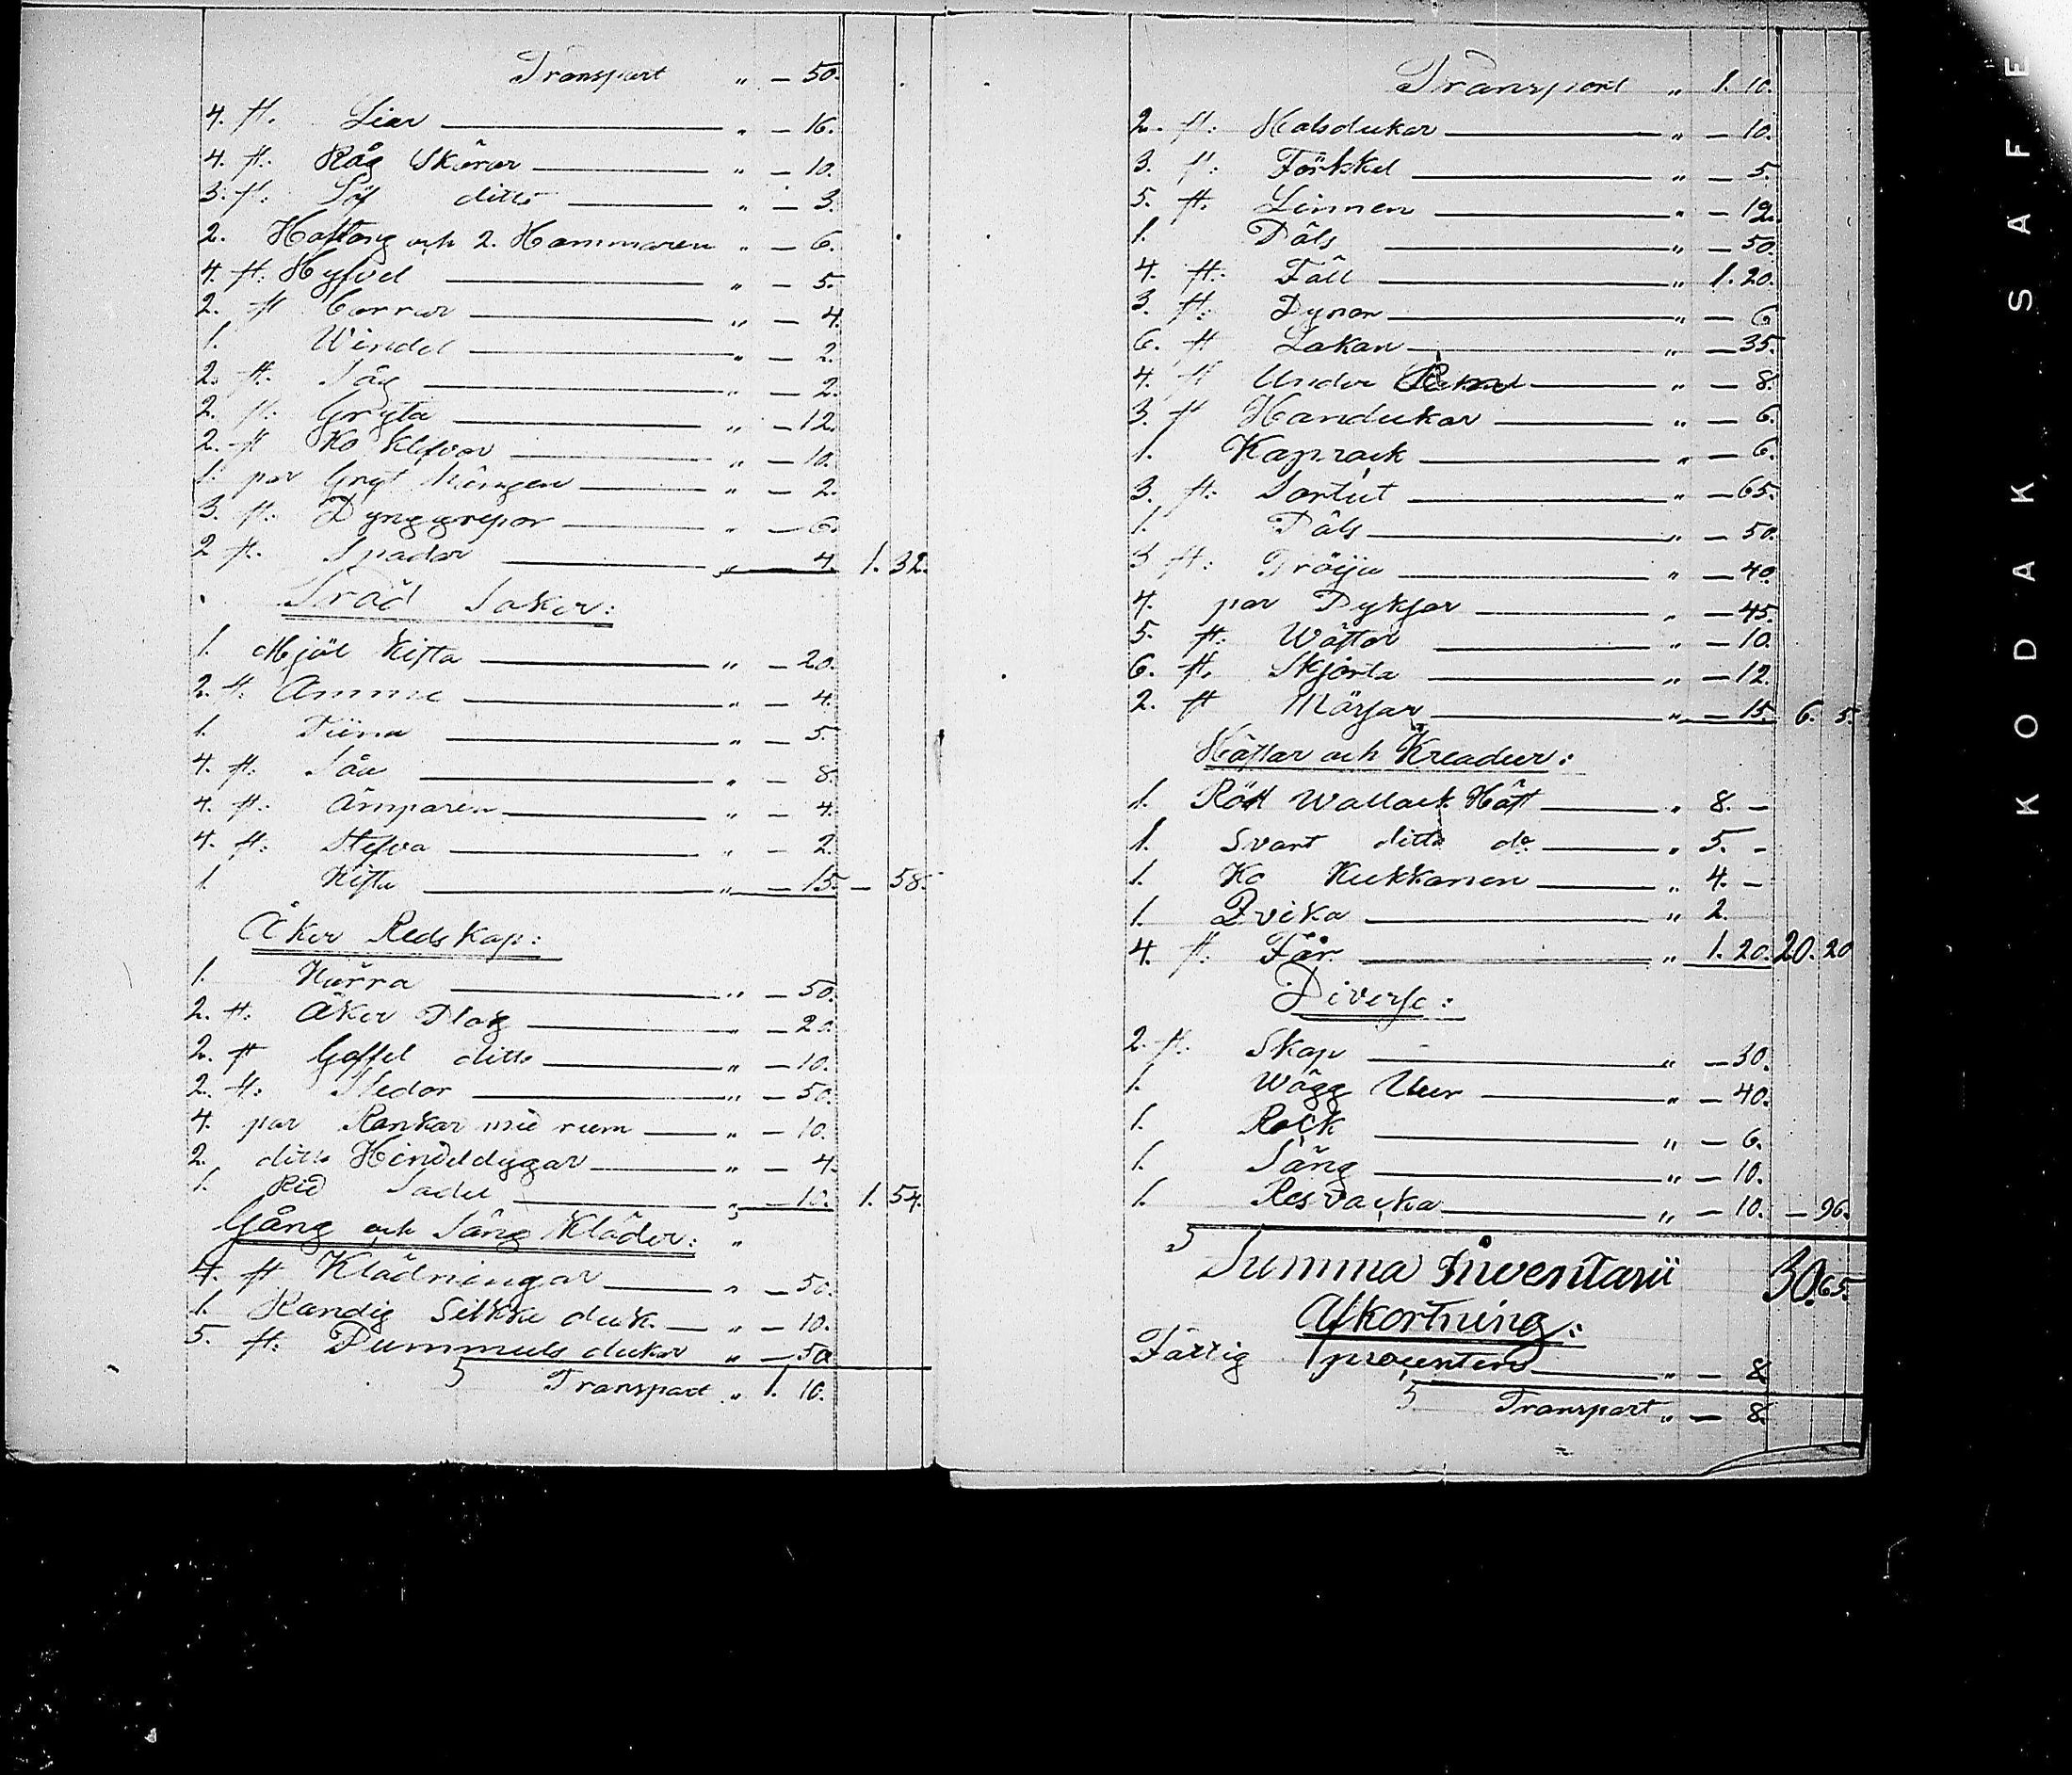 Transport " — 50.
4. st. Liar " — 16.
4. st: Råg Skäror " — 10.
3. st: Löf ditto " — 3.
2. Hoftång och 2. Hammaren " — 6.
4. st: Hyfvel " — 5.
2. st Borrar " — 4.
1. Windel " — 2.
2. st. Såg " — 2.
2. st: Gryta " — 12.
2. st Ko Klefvar " — 10.
1. par Gryt hängen " — 2.
3. st: Dynggrepor " — 6.
2 st. Spador " — 4. 1. 32.
Träd Saker:
1. Mjöl Kista " — 20.
2. st. Ämmne " — 4.
1. Tiina " — 5.
4. st: Såu " — 8.
4. st: Ämparen " — 4.
4. st: Stefva " — 2.
1. Kista " — 15. — 58.
Åker Redskap:
1. Kärra " — 50.
2. st: Åker Plog " — 20.
2. st Gaffel ditto " — 10.
2. st: Sledor " — 50.
4. par Rankar med reem " — 10.
2. ditto Hindeldygar " — 4.
1. Rid Sadel " — 10. 1. 54.
Gång och Säng Kläder: "
4. st Klädningar " — 50.
1. Randig Silkke duk. " — 10.
5. st: Bummuls dukar " — 50.
Transport " 1. 10.
Transport " 1. 10.
2. st: Halsdukar " — 10.
3. st: Förkkel " — 5.
5. st. Linnen " — 12.
1. Päls " — 50.
4. st: Fäll " 1. 20.
3. st: Dynor " — 6
6. st Lakan " — 35.
4. st Under " — 8.
3. st Handukar " — 6.
1. Kaprock " — 6.
3. st: Sortut " — 65.
1. Päls " — 50.
3 st: Tröiju " — 40.
4. par Byksor " — 45.
5. st: Wästar " — 10.
6. st. Skjorta " — 12.
2. st Mössar " — 15. 6. 5.
Hästar och Kreadur:
1. Röd Wallack Häst " 8. —
1. Svart ditto do " 5. -
1. Ko Kukkanen " 4. —
1. Qvika " 2.
4. st: Får " 1. 20. 20. 20
Diverse:
2. st: Skåp " — 30.
1. Wägg Uur " — 40.
1. Rock " — 6.
1. Säng " — 10.
1. Resvacka " — 10. — 96.
Summa Inventarii 30. 65.
Afkortning:
Fattig procenten " — 8.
Transport " — 8.
KODAK, SAFE